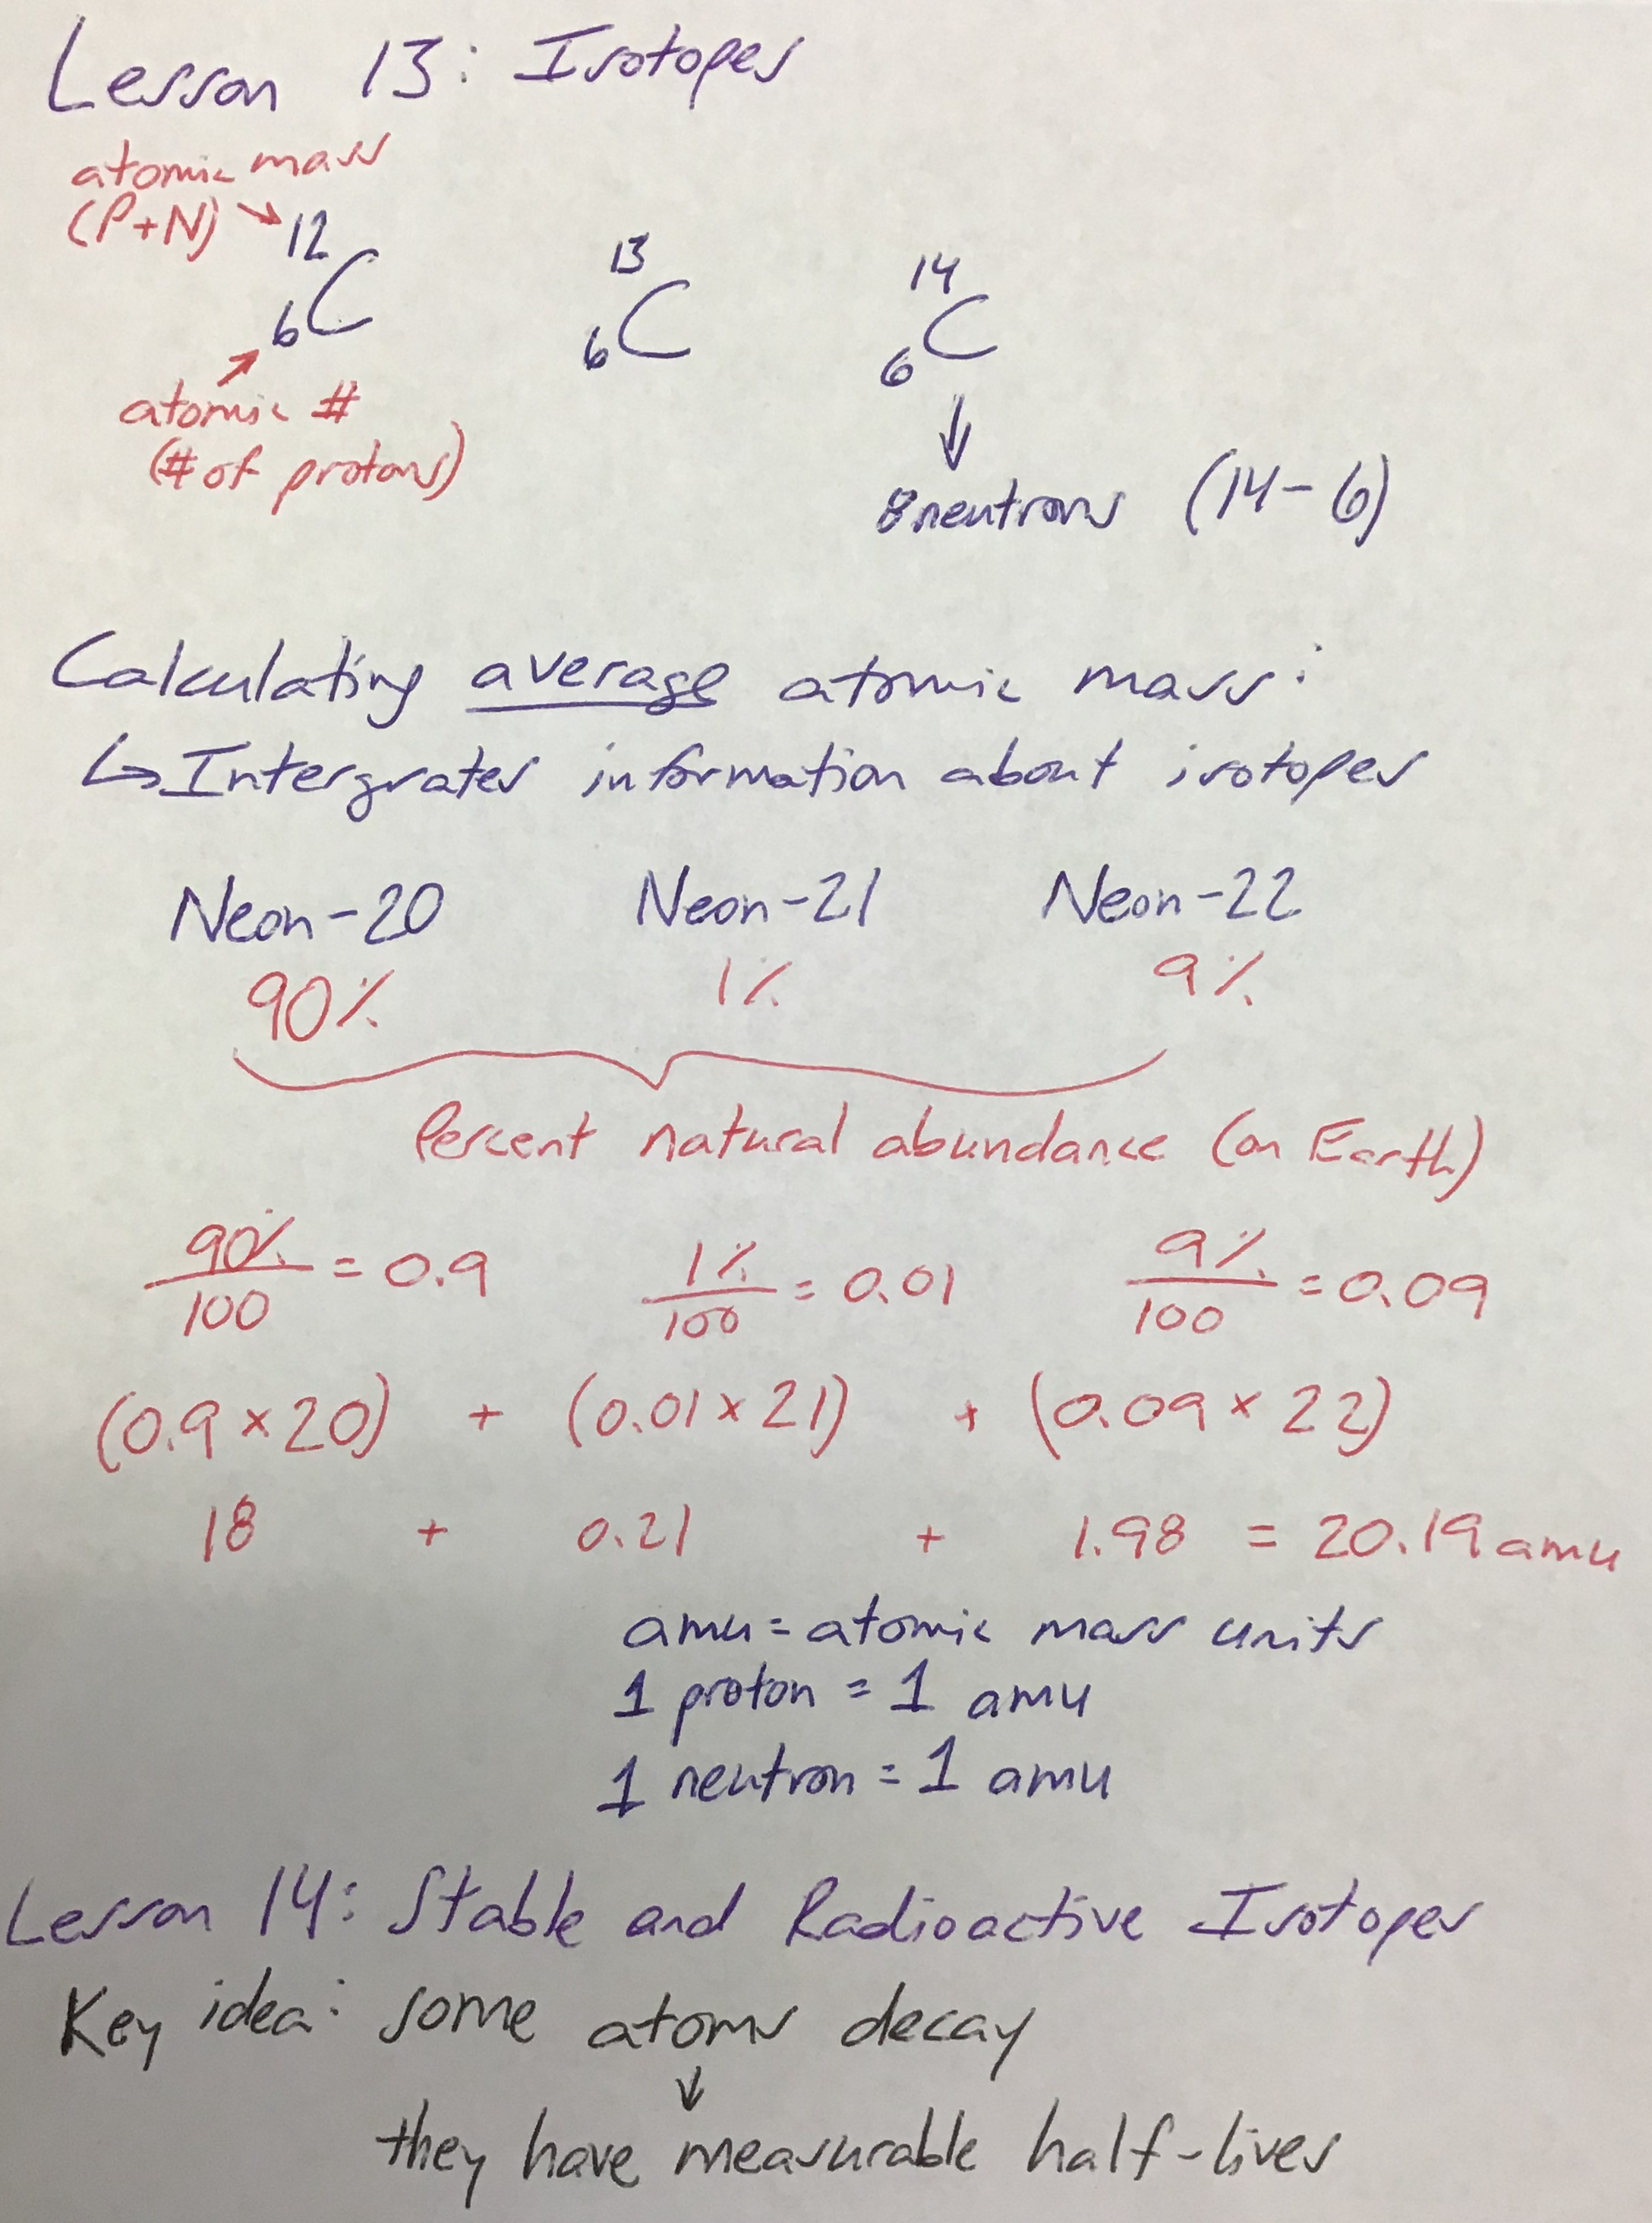 Lesson 13: Isotopes
atomic mass
(P+N) → 12 13 14
6C 6C 6C
atomic #
(# of protons)
8 neutrons (14-6)
Calculating average atomic mass:
↳ Intergrates information about isotopes
Neon-20 Neon-21 Neon-22
90% 1% 9%
Percent natural abundance (on Earth)
90%/100 = 0.9 1%/100 = 0.01 9%/100 = 0.09
(0.9 × 20) + (0.01 × 21) + (0.09 × 22)
18 + 0.21 + 1.98 = 20.19 amu
amu = atomic mass units
1 proton = 1 amu
1 neutron = 1 amu
Lesson 14: Stable and Radioactive Isotopes
Key idea: some atoms decay
↓
they have measurable half-lives